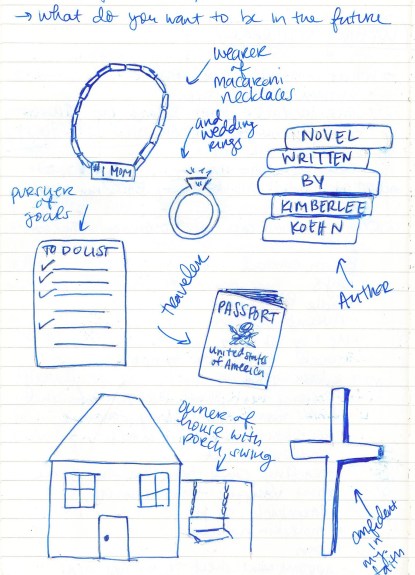 → what do you want to be in the future
wearer
of
macaroni
necklaces
#1 MOM
and
wedding
rings
NOVEL
WRITTEN
BY
KIMBERLEE
KOEHN
pursuer
of
goals
TO DO LIST
traveler
PASSPORT
united states
of America
Author
owner of
house with
porch swing
confident
in
my
faith